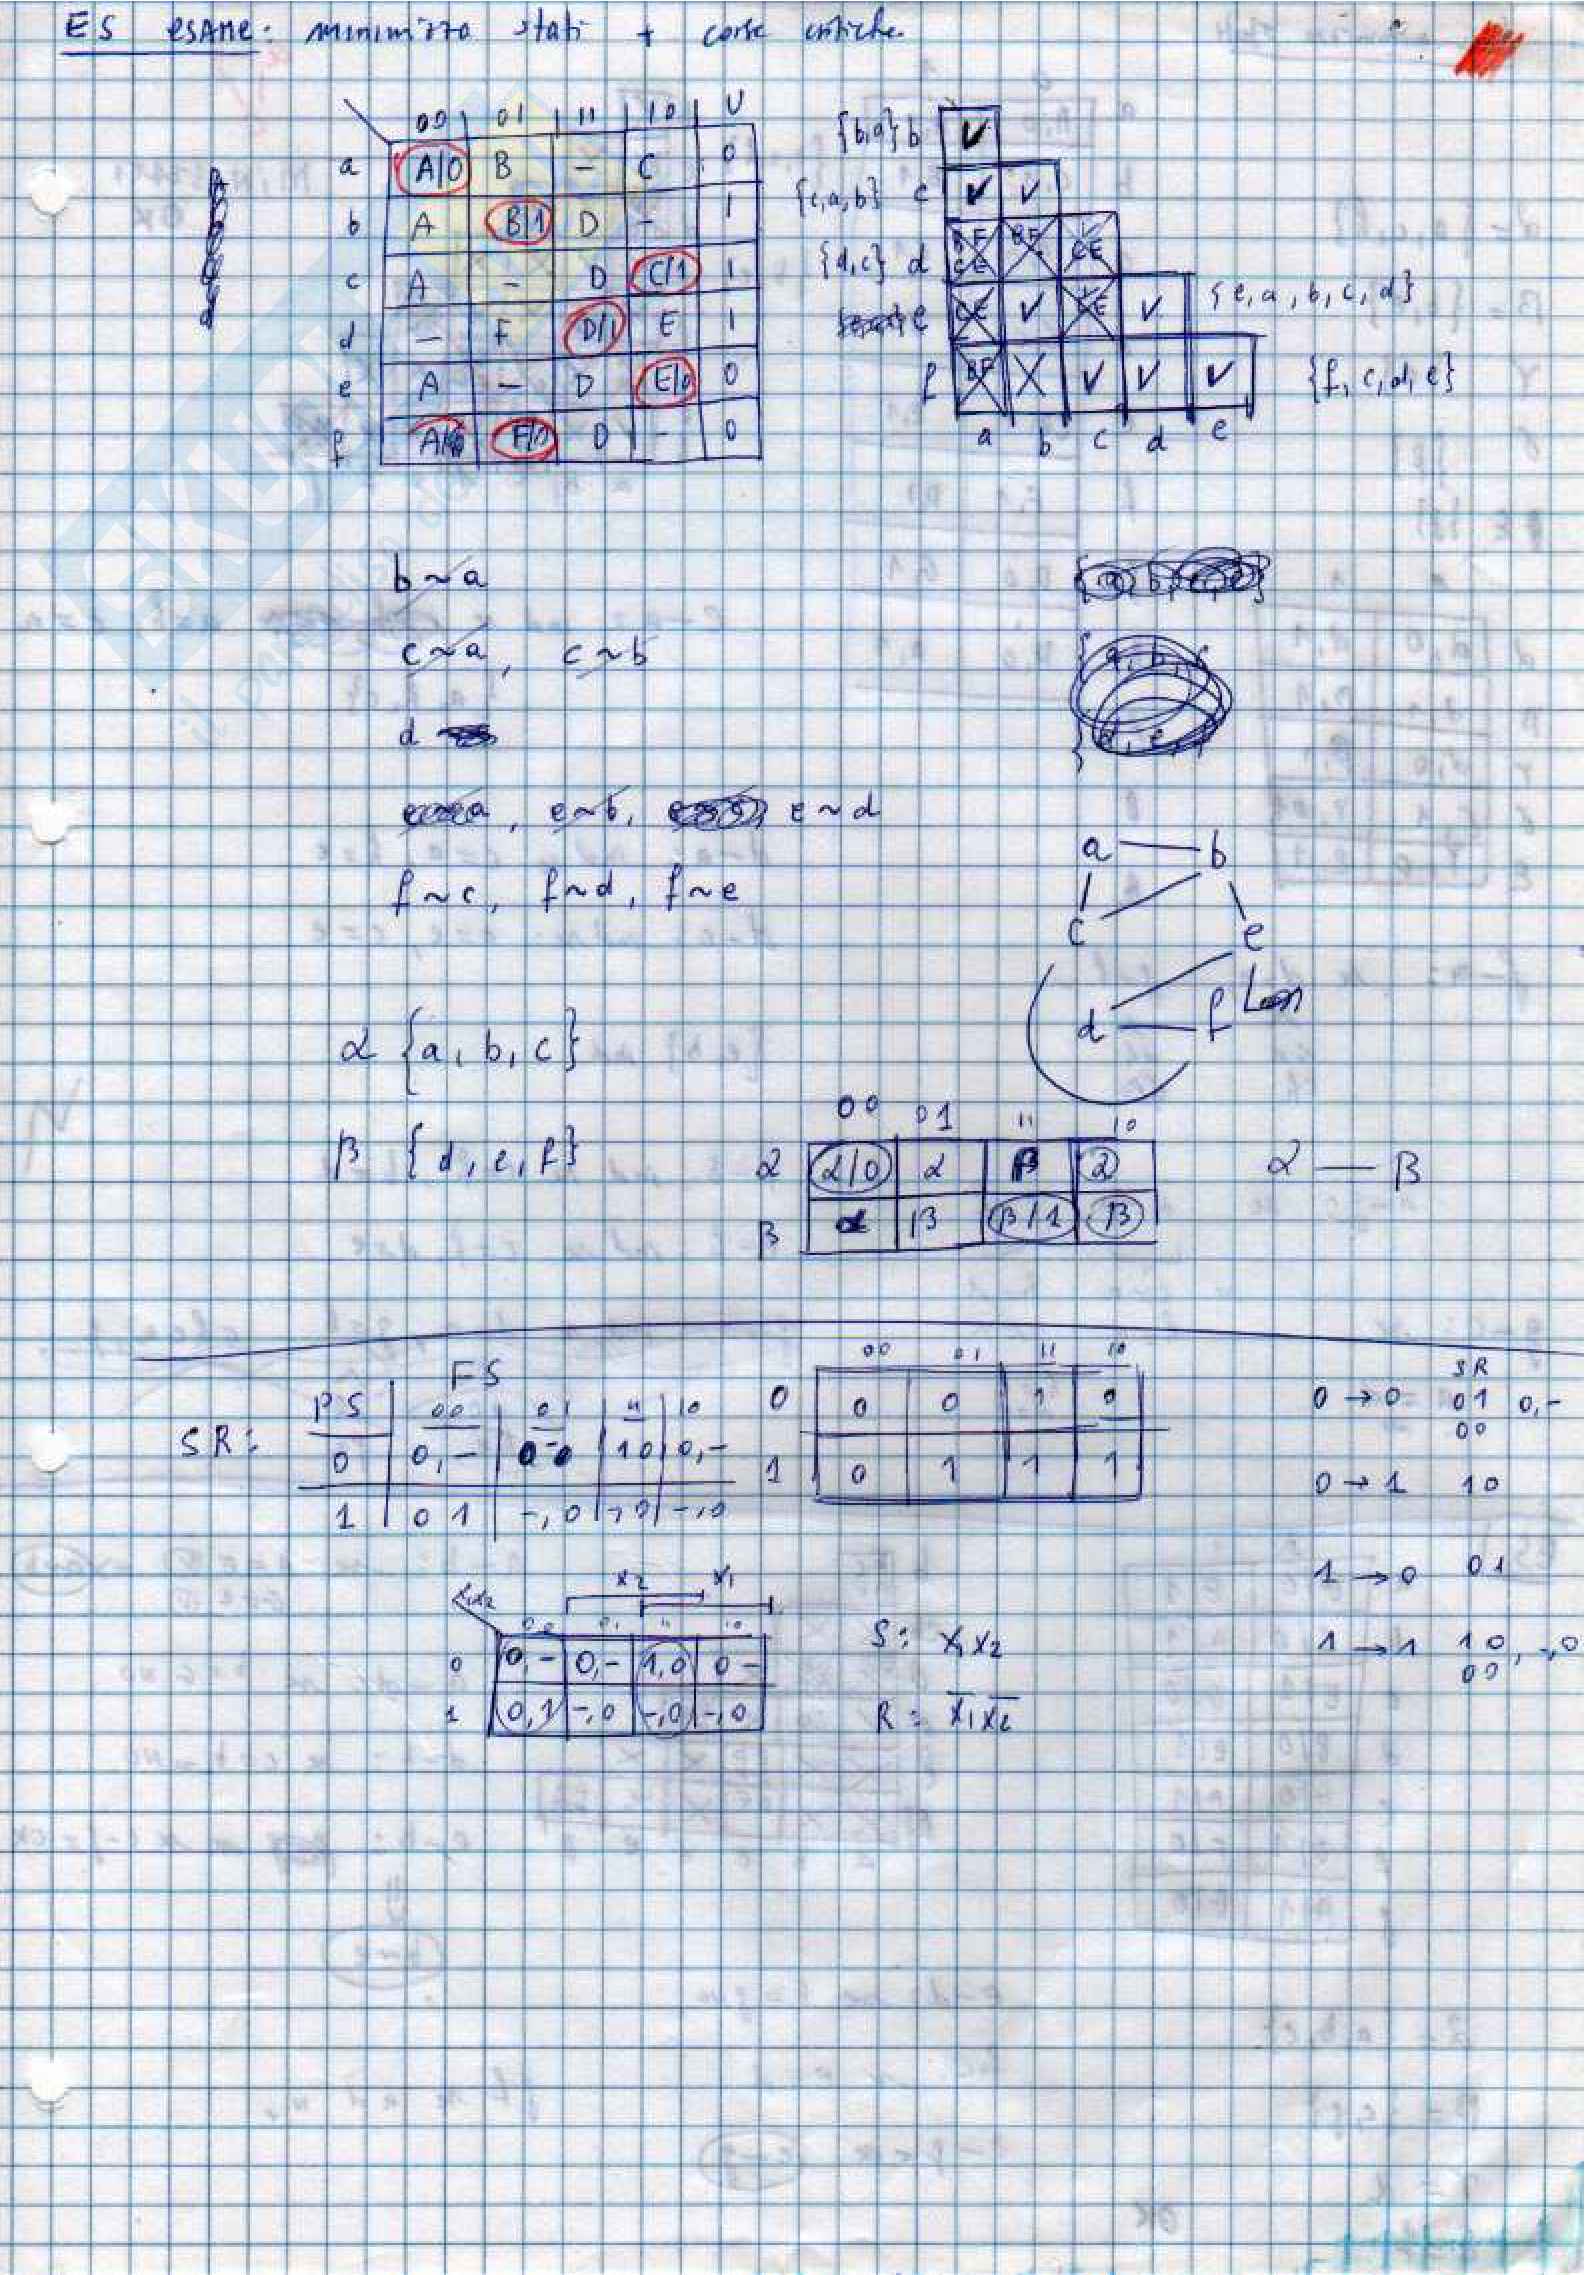 ES esame: minimizza stati + corse critiche
00 01 11 10 U
a A/0 B - C 0
b A B/1 D - 1
c A - D C/1 1
d - F D/1 E 1
e A - D E/0 0
f F/1 D - 0
{b,a} b ✓
{c,a,b} c ✓ ✓
{d,c} d BF CE BF CE
e CE ✓ CE ✓ {e,a,b,c,d}
f BF X ✓ ✓ ✓ {f,c,d,e}
a b c d e
b~a
c~a, c~b
d
, e~b, e~d
f~c, f~d, f~e
a b
c e
d f
α {a,b,c}
β {d,e,f}
00 01 11 10
α α/0 α β α
β α β β/1 β
α — β
SR:
FS
PS 00 01 11 10
0 0,- 0-0 10 0,-
1 01 -,0 -,0 -,0
00 01 11 10
0 0 0 1 0
1 0 1 1 1
SR
0→0 01 0,-
00
0→1 10
1→0 01
1→1 10, -,0
00
x1x2 x2 x1
00 01 11 10
0 0,- 0,- 1,0 0-
1 0,1 -,0 -,0 -,0
S: x1x2
R: x̅1x̅2